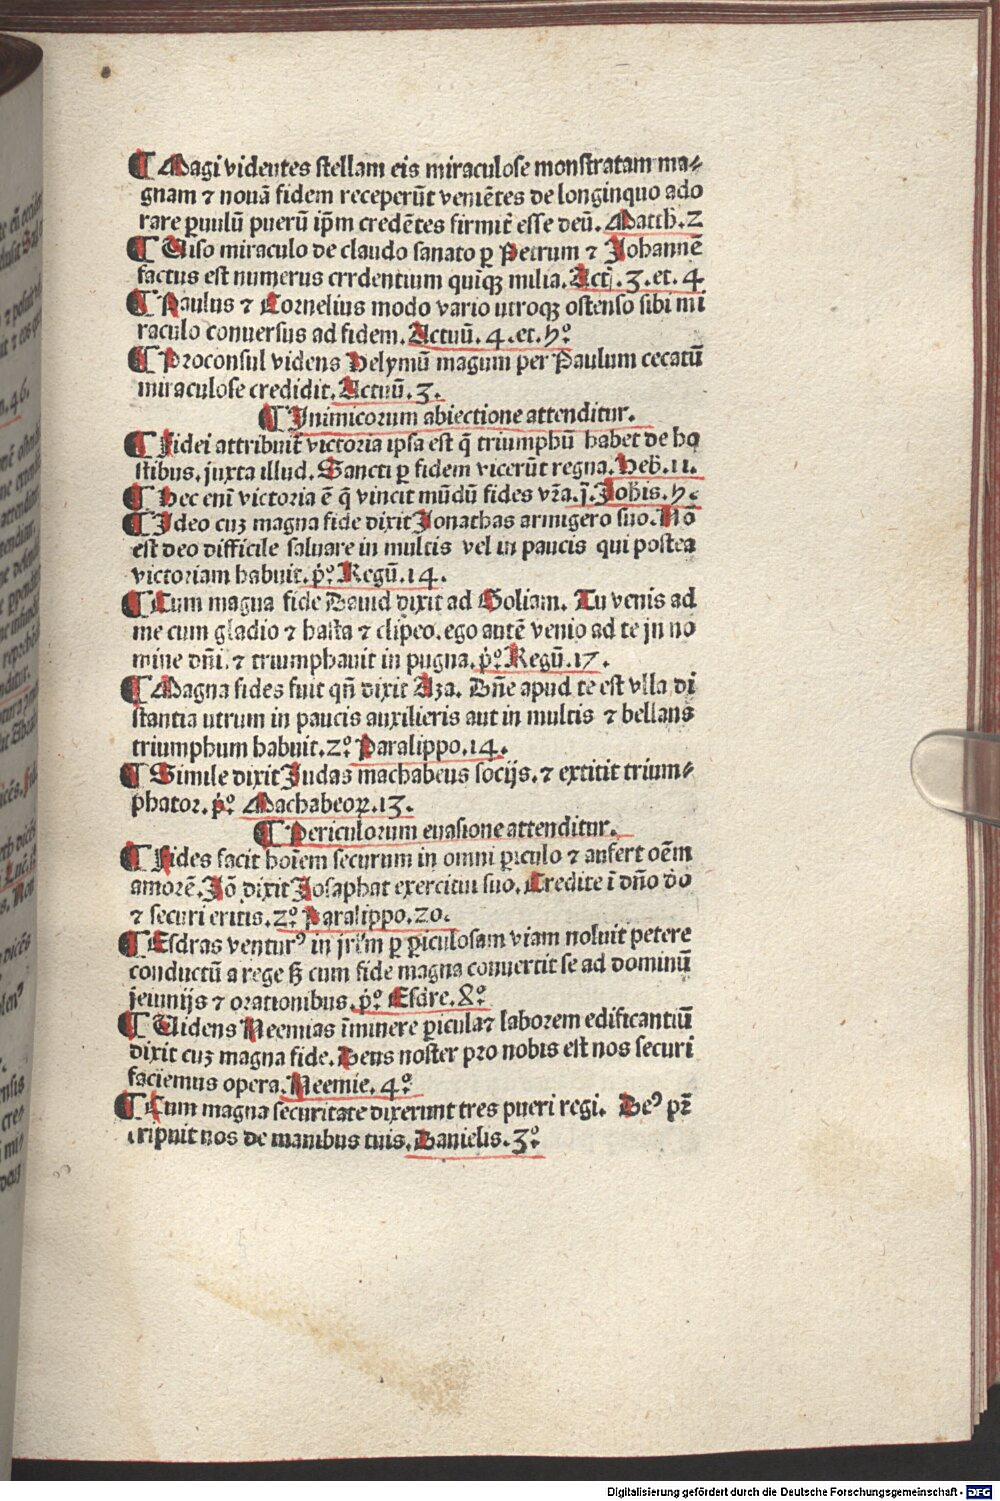 ¶ Magi videntes stellam eis miraculose monstratam ma⸗
gnam ⁊ nouā fidem receperūt veniētes de longinquo ado
rare ꝑuulū puerū ip̄m credētes firmit̄ esse deū. Matth. 2
¶ Uiso miraculo de claudo sanato ꝑ Petrum ⁊ Johannē
factus est numerus crrdentium quīqꝫ milia. Act̄. 3. et. 4
¶ Paulus ⁊ Cornelius modo vario utroqꝫ ostenso sibi mi
raculo conuersus ad fidem. Actuū. 4. et. ꝯº
¶ Proconsul videns Helymū magum per Paulum cecatū
miraculose credidit. Actuū. 3.
¶ Inimicorum abiectione attenditur.
¶ Fidei attribuit̄ victoria ipsa est q̄ triumphū habet de ho
stibus. juxta illud. Sancti ꝑ fidem vicerūt regna. Heb̄. 11.
¶ Hec enī victoria ē q̄ vincit mūdū fides vr̄a. j. Joh̄is. 5.
¶ Ideo cuꝫ magna fide dixit Jonathas armigero suo. Nō
est deo difficile saluare in multis vel in paucis qui postea
victoriam habuit. p̄º Regū. 14.
¶ Cum magna fide Dauid dixit ad Goliam. Tu venis ad
me cum gladio ⁊ hasta ⁊ clipeo. ego autē venio ad te jn no
mine dn̄i. ⁊ triumphauit in pugna. p̄º Regū. 17.
¶ Magna fides fuit qn̄ dixit Aza. Dn̄e apud te est vlla di
stantia utrum in paucis auxilieris aut in multis ⁊ bellans
triumphum habuit. 2º Paralippo. 14.
¶ Simile dixit Judas machabeus socijs. ⁊ extitit trium⸗
phator. p̄º Machabeoꝝ. 13.
¶ Periculorum euasione attenditur.
¶ Fides facit hoīem securum in omni ꝑiculo ⁊ aufert oēm
amorē. Jō dixit Josaphat exercitui suo. Credite ī dn̄o dō
⁊ securi eritis. 2º Paralippo. 20.
¶ Esdras venturꝰ in jrl̄m ꝑ ꝑiculosam viam noluit petere
conductū a rege ſꝫ cum fide magna conuertit se ad dominū
jeiunijs ⁊ orationibus. p̄º Esdre. 8º
¶ Uidens Neemias īminere ꝑicula ⁊ laborem edificantiū
dixit cuꝫ magna fide. Deus noster pro nobis est nos securi
faciemus opera. Neemie. 4º
¶ Cum magna securitate dixerunt tres pueri regi. Deꝰ pr̄
eripuit nos de manibus tuis. Danielis. 3º
Digitalisierung gefördert durch die Deutsche Forschungsgemeinschaft - DFG